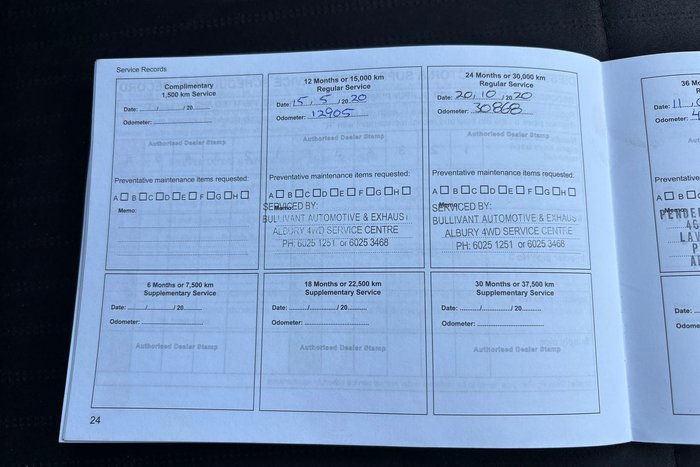 Service Records
Complimentary
1,500 km Service
Date: ......../............/ 20..........
Odometer: ..............................
Authorised Dealer Stamp
Preventative maintenance items requested:
A □ B □ C □ D □ E □ F □ G □ H □
Memo:
12 Months or 15,000 km
Regular Service
Date: 15 / 5 / 20 20
Odometer: 12905
Authorised Dealer Stamp
Preventative maintenance items requested:
A □ B □ C □ D □ E □ F □ G □ H □
Memo:
SERVICED BY:
BULLIVANT AUTOMOTIVE & EXHAUST
ALBURY 4WD SERVICE CENTRE
PH: 6025 1251 or 6025 3468
24 Months or 30,000 km
Regular Service
Date: 20 / 10 / 20 20
Odometer: 30868
Authorised Dealer Stamp
Preventative maintenance items requested:
A □ B □ C □ D □ E □ F □ G □ H □
Memo:
SERVICED BY:
BULLIVANT AUTOMOTIVE & EXHAUST
ALBURY 4WD SERVICE CENTRE
PH: 6025 1251 or 6025 3468
6 Months or 7,500 km
Supplementary Service
Date: ......../............/ 20..........
Odometer: ..............................
Authorised Dealer Stamp
18 Months or 22,500 km
Supplementary Service
Date: ......../............/ 20..........
Odometer: ..............................
Authorised Dealer Stamp
30 Months or 37,500 km
Supplementary Service
Date: ......../............/ 20..........
Odometer: ..............................
Authorised Dealer Stamp
24
36 M
R
Date: 11
Odometer: 4
Prevent
A □ B □
LAV
Date: ...
Odome